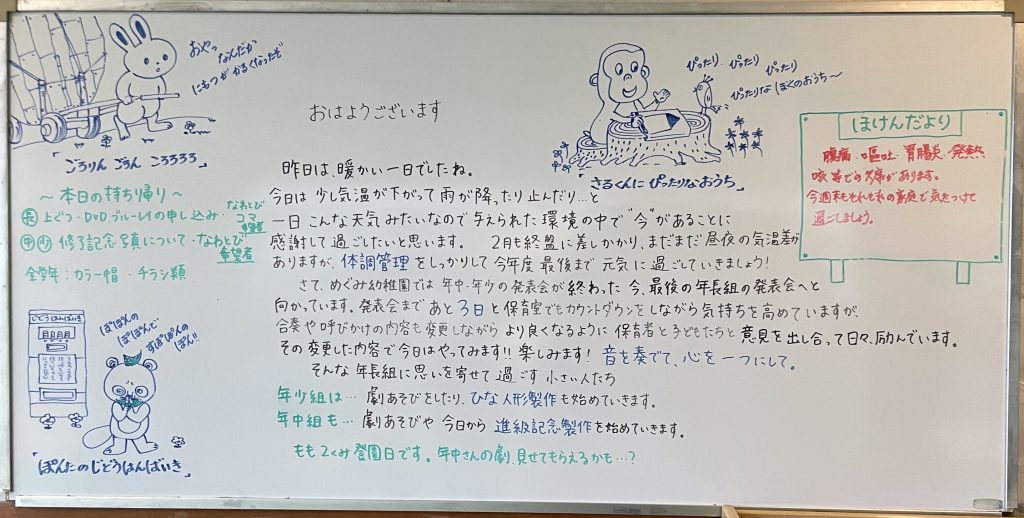 おやっ なんだか
にもつが かるくなったぞ
ごろりん ごろん ころろろろ
〜本日の持ち帰り〜
㊗長 上ぐつ・DVD、ブルーレイの申し込み・なわとび コマ 希望者
中 少 修了記念写真について・なわとび 希望者
全学年：カラー帽・チラシ類
じどうはんばいき
ぽぽんの
ぽぽんで
すぽぽんの
ぽん!!
ぽんたのじどうはんばいき
おはようございます
昨日は、暖かい一日でしたね。
今日は 少し気温が下がって雨が降ったり止んだり…と
一日こんな天気みたいなので与えられた環境の中で“今”があることに
感謝して過ごしたいと思います。 2月も終盤に差しかかり、まだまだ昼夜の気温差が
ありますが、体調管理をしっかりして今年度最後まで元気に過ごしていきましょう！
さて、めぐみ幼稚園では 年中・年少の発表会が終わった今、最後の年長組の発表会へと
向かっています。発表会まで あと3日と保育室でもカウントダウンをしながら気持ちを高めていますが、
合奏や呼びかけの内容も変更しながら より良くなるように 保育者と子どもたちと意見を出し合って日々、励んでいます。
その変更した内容で今日はやってみます!! 楽しみます！ 音を奏でて、心を一つにして。
そんな年長組に思いを寄せて過ごす 小さい人たち
年少組は… 劇あそびをしたり、ひな人形製作も始めていきます。
年中組も… 劇あそびや 今日から 進級記念製作を始めていきます。
もも2くみ登園日です。年中さんの劇、見せてもらえるかも…？
ぴったり、ぴったり ぴったり
ぴったりな ぼくのおうち〜
「さるくんにぴったりなおうち」
ほけんだより
腹痛・嘔吐・胃腸炎・発熱
咳等での欠席があります。
今週末もそれぞれの家庭で気をつけて
過ごしましょう。